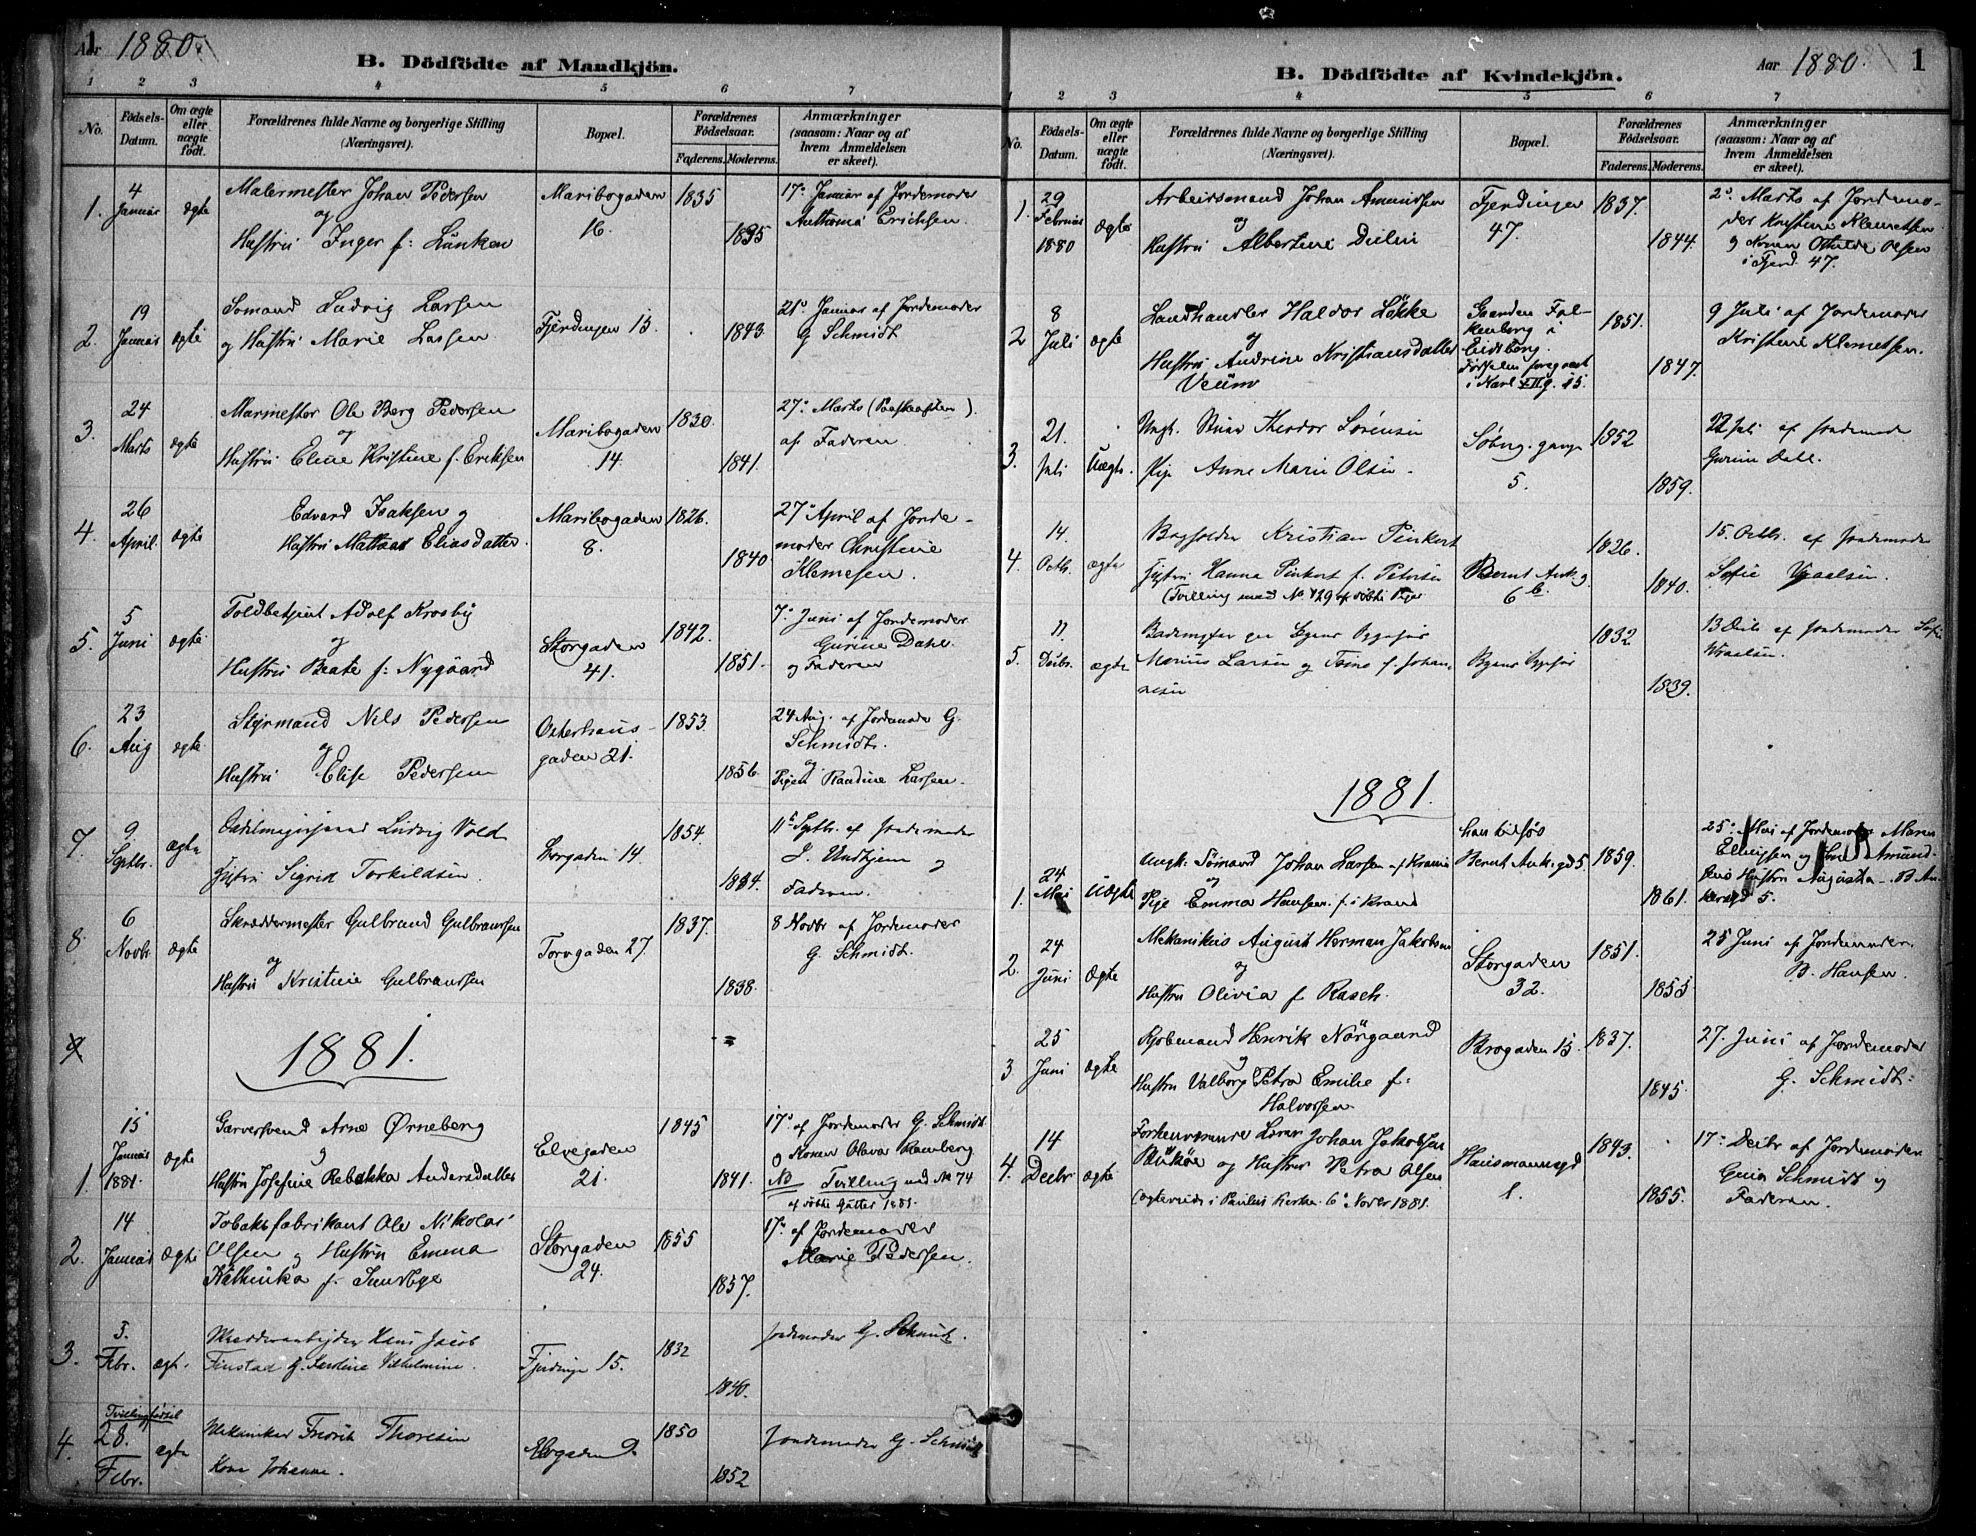 Aar 1880.
1
B. Dödfödte af Mandkjön.
1 2 3 4 5 6 7
No. Födsels-Datum. Om ægte eller uægte født. Forældrenes fulde Navne og borgerlige Stilling (Næringsvei). Bopæl. Forældrenes Födselsaar. Faderens. Moderens. Anmærkninger (saasom: Naar og af hvem Anmeldelsen er skeet).
1. 4 Januar ægte
Malermester Johan Pedersen
og
Hustru Inger f: Lünken
Maribogaden
16.
1835
1835
17' Januar af Jordemoder
Anthoma Erichsen.
2. 19 Januar ægte
Sømand Ludvig Larsen
og Hustru Marie Larsen
Fjerdingen 15.
1843
21' Januar af Jordemoder
G Schmidt.
3. 24 Marts ægte
Murmester Ole Berg Pedersen
og
Hustru Eline Kristine f. Eriksen
Maribogaden
14.
1830.
1841.
27' Marts (Paaskeaften).
af Faderen
4. 26 April. ægte
Edvard Isaksen og
Hustru Mathea Eliasdatter.
Maribogaden
8.
1826.
1840.
27' April af Jorde-
moder Christine
Klemesen.
5. 5 Juni ægte
Toldbetjent Adolf Krosby
og
Hustru Beate f: Nygaard
Storgaden
41.
1842.
1851.
7' Juni af Jordemoder
Gurine Dahl.
og Faderen
6. 23 Aug ægte
Styrmand Nils Pedersen
og
Hustru Elise Pedersen
Osterhaus-
gaden 21.
1853.
1856.
24 Aug. af Jordemoder G.
Schmidt.
og
Pigen Randine Larsen.
7. 9 Septbr. ægte
Ludvig Vold
Hustru Sigrid Torkildsen.
Torgaden 14.
1854.
1834.
11' Septbr. af Jordemoder
J. Undhjem og
Faderen.
8. 6 Novbr ægte
Skræddermester Gulbrand Gulbranssen
og
Hustru Kristine Gulbranssen
Torvgaden 27.
1837.
1838.
8 Novbr af Jordemoder
G. Schmidt.
9
1881.
1. 15 Januar 1881. ægte
Garversvend Arne Ørneberg
og
Hustru Josefine Rebekka Andersdatter
Elvegaden
21.
1845
1841.
17' af Jordemoder G. Schmidt
og Konen Olava Ramberg
NB Tvilling med No 74
af födte Gutter 1881.
2. 14 Januar ægte
Tobaksfabrikant Ole Nikolai
Olsen og Hustru Emma
Kathinka f.
Storgaden
24.
1855
1857.
17' af Jordemoder
Marie Pedersen.
3. 5. Febr. ægt.
Hans Jacob
Finstad og Karoline Vilhelmine.
Fjerdinge 15.
1832
1840.
Jordemoder G. Schmidt.
4. Tvillingfødsel
28. Febr. ægte
Mekaniker Fredrik Thoresen
Kone Johanne.
Elvegaden 9.
1850
1852
Jordemoder G. Schmidt
B. Dödfödte af Kvindekjön.
Aar 1880.
1
1 2 3 4 5 6 7
No. Födsels-Datum. Om ægte eller uægte født. Forældrenes fulde Navne og borgerlige Stilling (Næringsvei). Bopæl. Forældrenes Födselsaar. Faderens. Moderens. Anmærkninger (saasom: Naar og af hvem Anmeldelsen er skeet).
1. 29 Februar 1880 ægte
Arbeidsmand Johan Amundsen
og
Hustru Albertine
Fjerdingen
47.
1837.
1844.
2' Marts af Jordemo-
der Kristine Klemetsen
og Konen Othilde Olsen
i Fjerd. 47.
2 8 Juli ægte
Landhandler Haldor Løkke
og
Hustru Andrine Kristiansdatter
Veum
Gaarden Fal-
kenberg i
Eidsberg.
Fødselen foregaaet
i Karl XIIg. 15.
1851.
1847.
9 Juli af Jordemoder
Kristine Klemetsen.
3. 21. Juli Uægte.
Ungk. Theodor Sørensen
Pige Anne Marie Olsen.
5.
1852
1859.
22 Juli af Jordemoder
Gurine Dahl.
4. 14. Octbr. ægte
Bogholder Kristian Pinkert
Hustru Hanna Pinkert f. Petersen
(Tvilling med No 129 af födte Piger
Bernt Ank. g.
6 b.
1826.
1840.
15. Octbr. af Jordemoder
Sofie
5. 11. Decbr. ægte
Marius Larsen og f. Johan-
nesen
1832
1839.
13 Decbr af Jordemoder Sofie
1881.
1. 24 Mai Uægte
Ungk: Sömand Johan Larsen
og
Pige Emma Hansen
Bernt Ank. gd 5.
1859.
1861.
25' Mai af Jordemoder Maren
Ellingsen og Amund-
sens Hustru Augusta B. An-
kersgd 5.
2. 24 Juni Ægte
Mekanikus August Herman Jakobsen
og
Hustru Olivia f. Rasch.
Storgaden
32.
1851.
1855
25 Juni af Jordemoder.
B. Hansen.
3 25 Juni ægte
Kjøbmand Henrik Nörgaard
og
Hustru Valborg Petra Emilie f:
Halvorsen.
Brogaden 15.
1837.
1845.
27. Juni af Jordemoder
G. Schmidt.
4. 14 Decbr ægte
Johan Jakobsen
og Hustru Petra Olsen
(ægteviede i Paulus Kirke. 6' Novbr 1881.
Hausmannsgd
1.
1843.
1855.
17' Decbr af Jordemoder
Gina Schmidt og
Faderen.